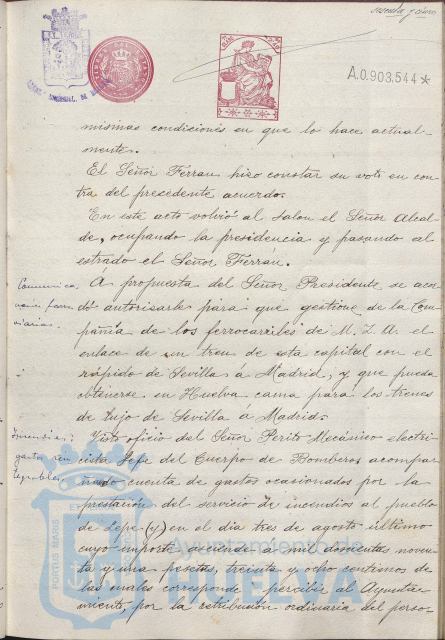 sesenta y cinco
A.0.903.544*
mismas condiciones en que lo hace actual-
mente.
El Señor Ferrau hizo constar su voto en con-
tra del precedente acuerdo.
En este acto volvió al salon el Señor Alcal-
de, ocupando la presidencia y pasando al
estrado el Señor Ferrau.
Comunica-
ciones ferro-
viarias.
Á propuesta del Señor Presidente se acor-
dó autorisarle para que gestione de la Com-
pañía de los ferrocarriles de M. Z. A. el
enlace de un tren de esta capital con el
rápido de Sevilla á Madrid, y que pueda
obtenerse en Huelva cama para los trenes
de lujo de Sevilla á Madrid.
Incendios:
gastos rein-
tegrables.
Visto oficio del Señor Perito Mecánico electri-
cista Jefe del Cuerpo de Bomberos acompa-
ñando cuenta de gastos ocasionados por la
prestación del servicio de incendios al pueblo
de Lepe (y) en el dia tres de agosto último
cuyo importe asciende a mil doscientas noven-
ta y una pesetas, treinta y ocho centimos de
las cuales corresponde percibir al Ayunta-
miento por la retribución ordinaria del perso-
PORTUS MARIS
Ayuntamiento de
HUELVA